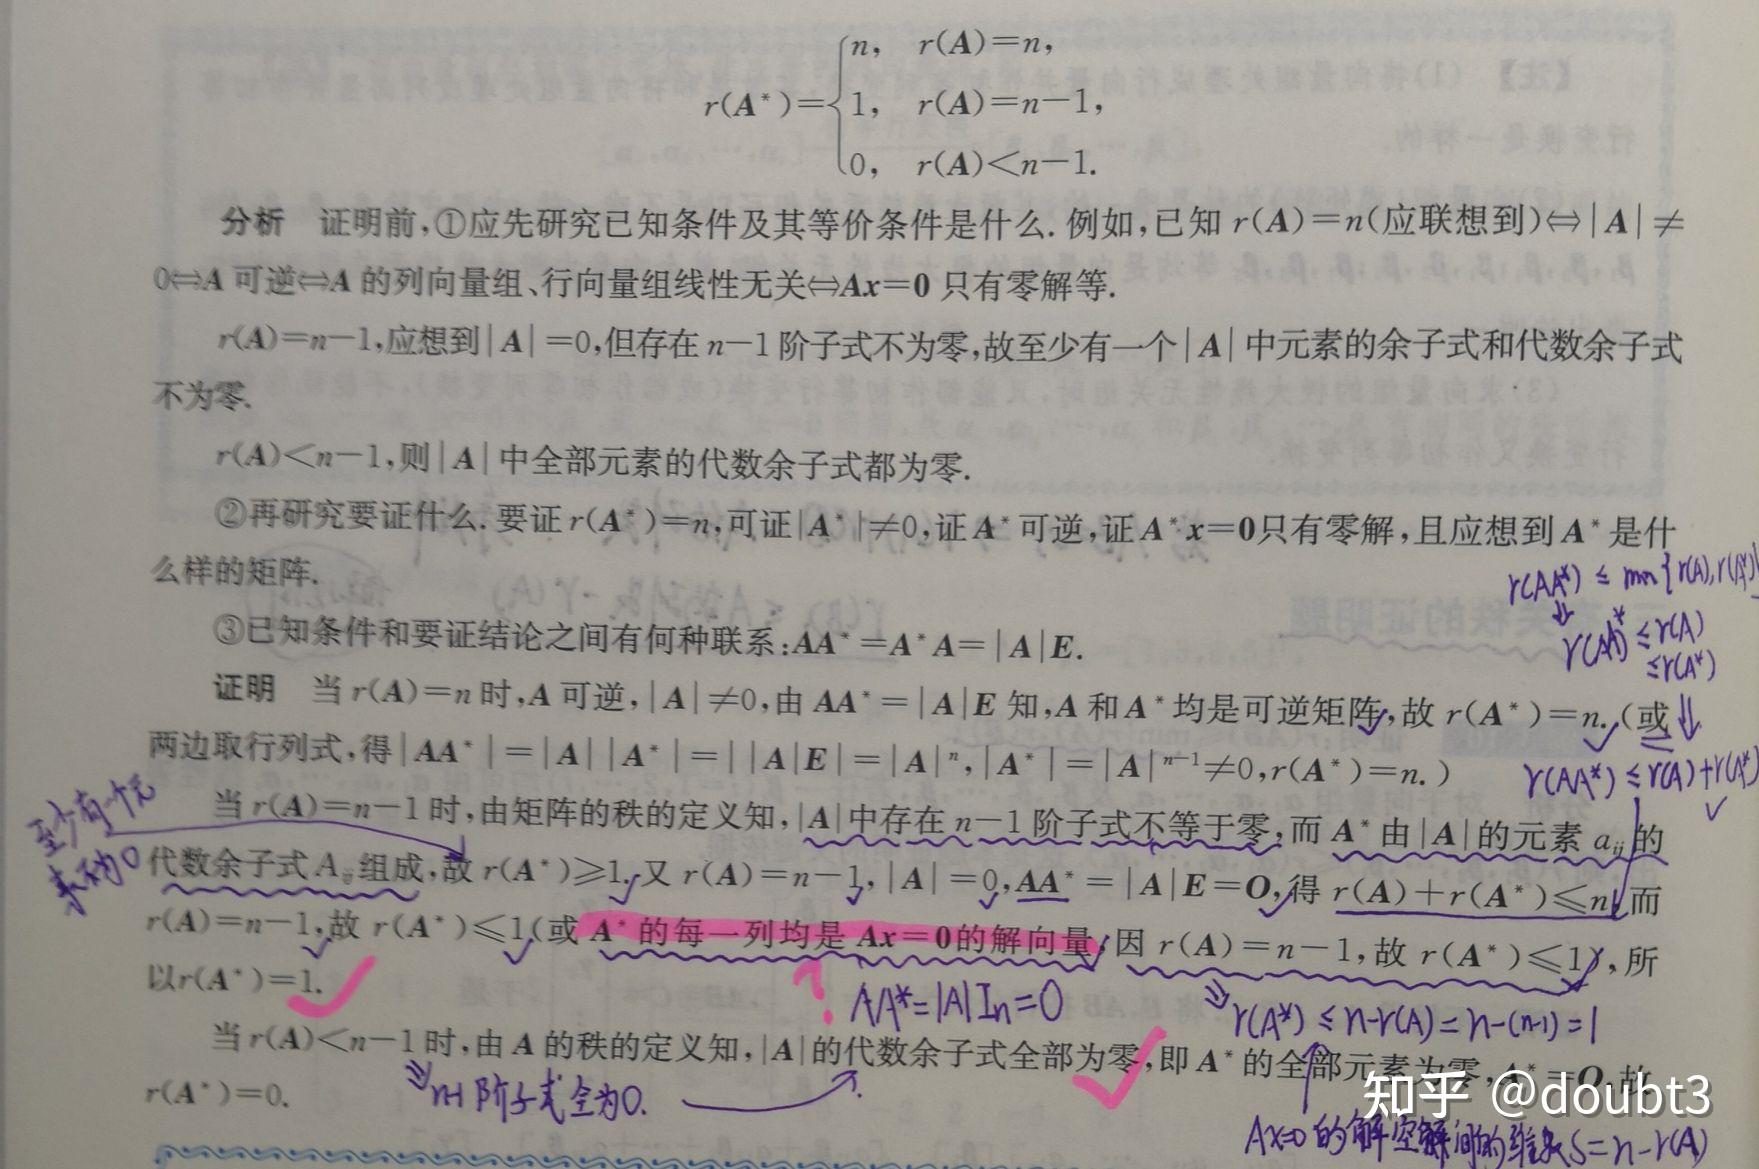 r(A*)={n, r(A)=n,
1, r(A)=n-1,
0, r(A)<n-1.
分析 证明前,①应先研究已知条件及其等价条件是什么. 例如,已知 r(A)=n(应联想到)⇔|A|≠
0⇔A 可逆⇔A 的列向量组、行向量组线性无关⇔Ax=0 只有零解等.
r(A)=n-1,应想到|A|=0,但存在 n-1 阶子式不为零,故至少有一个|A|中元素的余子式和代数余子式
不为零.
r(A)<n-1,则|A|中全部元素的代数余子式都为零.
②再研究要证什么. 要证 r(A*)=n,可证|A*|≠0,证 A* 可逆,证 A*x=0只有零解,且应想到 A* 是什
么样的矩阵.
r(AA*) ≤ min{r(A),r(A*)}
③已知条件和要证结论之间有何种联系:AA*=A*A=|A|E.
r(AA*) ≤r(A)
≤r(A*)
证明 当 r(A)=n 时,A 可逆,|A|≠0,由 AA*=|A|E 知,A 和 A* 均是可逆矩阵,故 r(A*)=n.(或
两边取行列式,得|AA*|=|A||A*|=||A|E|=|A|ⁿ,|A*|=|A|ⁿ⁻¹≠0,r(A*)=n.)
r(AA*) ≤r(A)+r(A*)
当 r(A)=n-1 时,由矩阵的秩的定义知,|A|中存在 n-1 阶子式不等于零,而 A* 由|A|的元素 aᵢⱼ的
至少有一个元
素不为0
代数余子式 Aᵢⱼ组成,故 r(A*)≥1. 又 r(A)=n-1,|A|=0,AA*=|A|E=O,得 r(A)+r(A*)≤n,而
r(A)=n-1,故 r(A*)≤1(或 A* 的每一列均是 Ax=0的解向量,因 r(A)=n-1,故 r(A*)≤1),所
以r(A*)=1.
? AA*=|A|Iₙ=0
⇒r(A*) ≤ n-r(A)=n-(n-1)=1
当 r(A)<n-1 时,由 A 的秩的定义知,|A|的代数余子式全部为零,即 A* 的全部元素为零,A*=O,故
r(A*)=0.
⇒n-1阶子式全为0.
知乎 @doubt3
Ax=0的解空间的维数S=n-r(A)